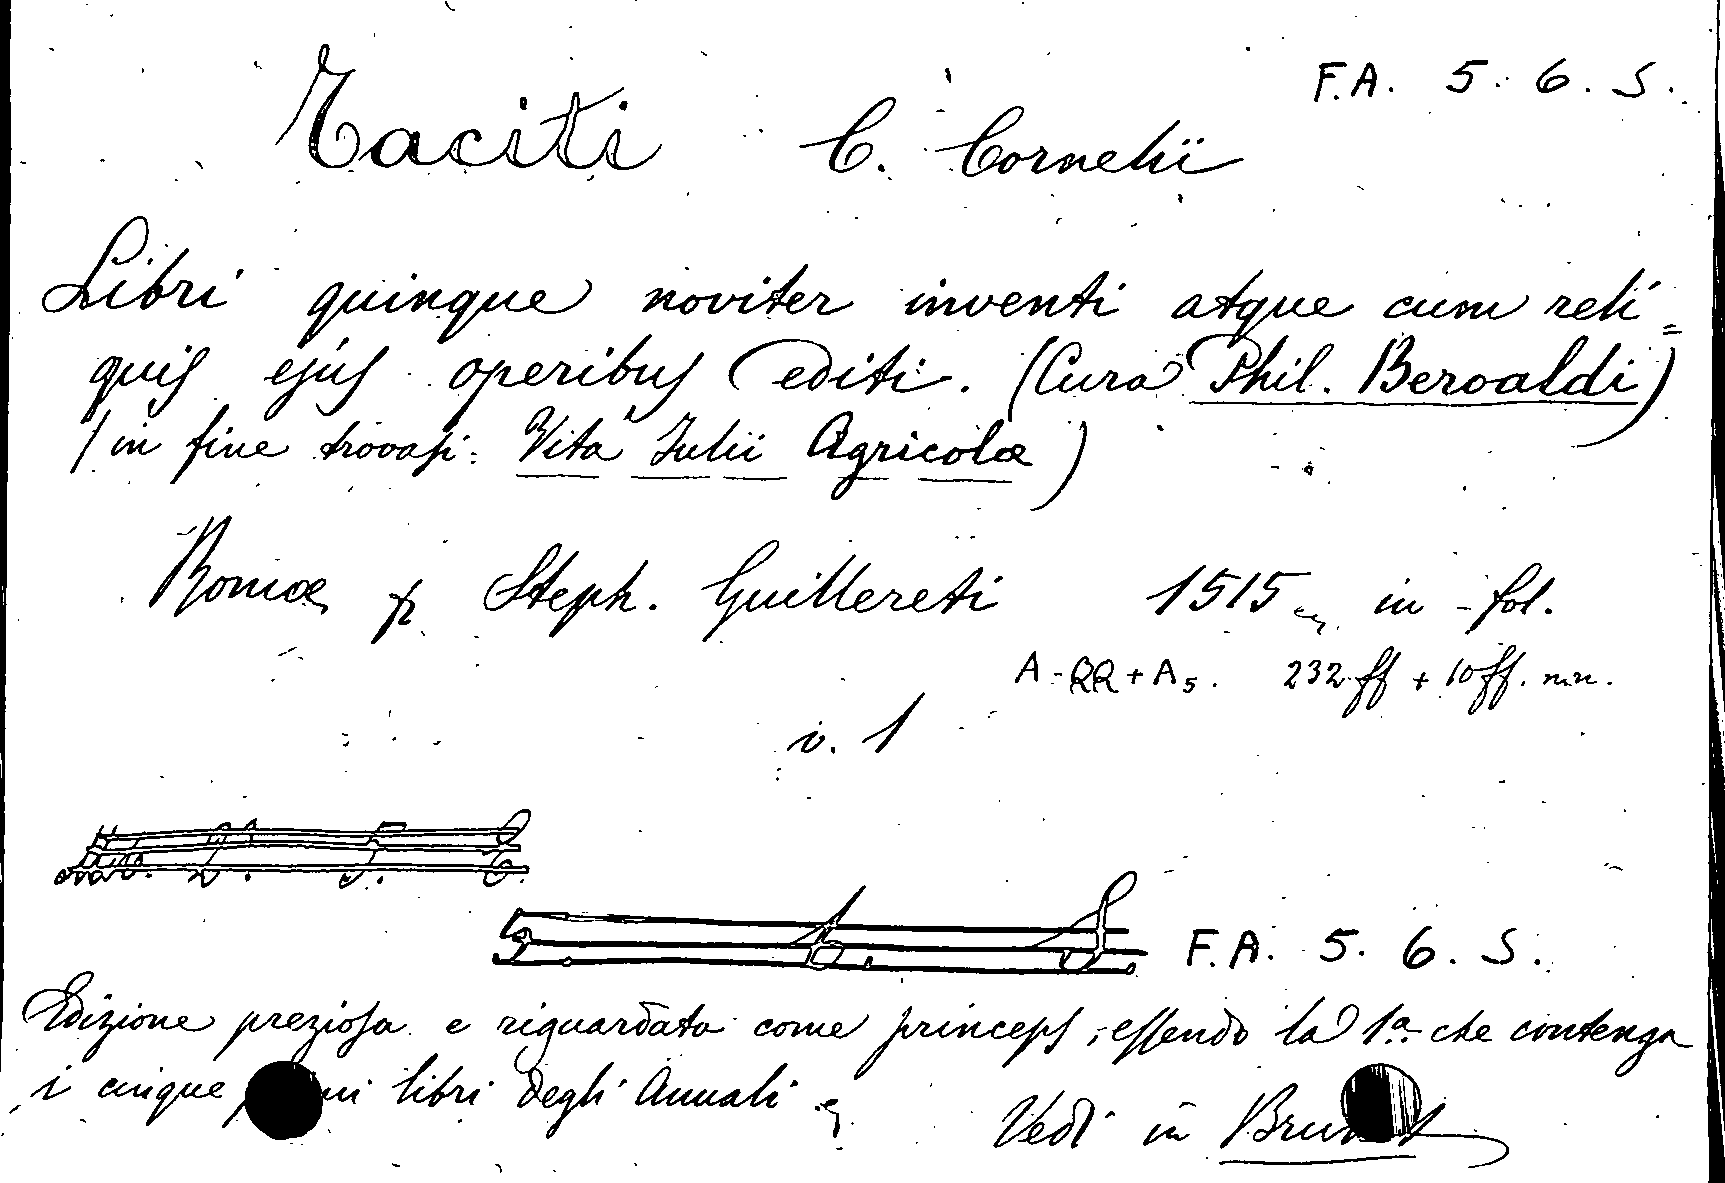 F.A. 5. 6. S.
Taciti C. Cornelii
Libri quinque noviter inventi atque cum reli=
quis ejus operibus editi. (Cura Phil. Beroaldi)
(in fine trovasi: Vita Julii Agricolæ)
Romæ p Steph. Guillereti 1515 in-fol.
A-RR+A5. 232 ff + 10 ff. nn.
v. 1
F.A. 5. 6. S.
Edizione preziosa e riguardata come princeps, essendo la 1ª che contenga
i cinque libri degli Annali
Vedi in